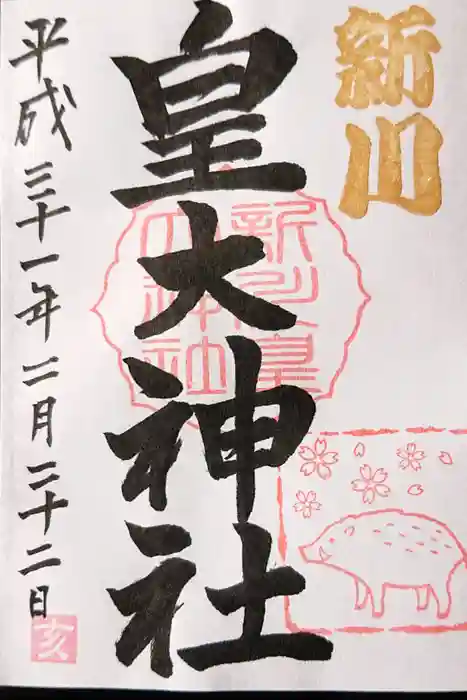 新川
皇大神社
平成三十一年二月二十二日
亥
新川皇
大神社